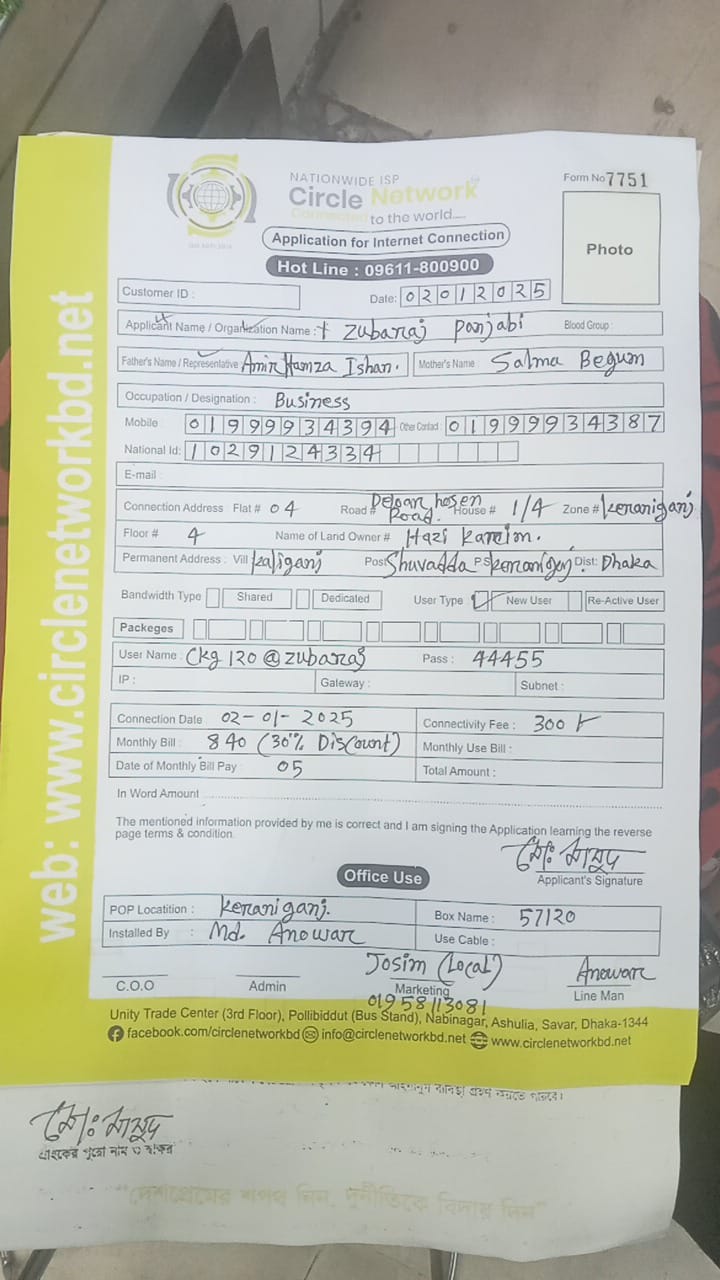 web: www.circlenetworkbd.net
NATIONWIDE ISP
Circle Network
Connected to the world.....
Form No 7751
Photo
Application for Internet Connection
Hot Line : 09611-800900
Customer ID :
Date: 02012025
Applicant Name / Organization Name : Zubaraj Panjabi Blood Group :
Father's Name / Representative Amir Hamza Ishan. Mother's Name Salma Begum
Occupation / Designation : Business
Mobile : 01999934394 Other Contact : 01999934387
National Id: 1029124334
E-mail
Connection Address Flat # 04 Road # Deloar hosen Road. House # 1/4 Zone # Keraniganj
Floor # 4 Name of Land Owner # Hazi Kareim.
Permanent Address : Vill Kaliganj Post Shuvadda P.S Keraniganj Dist: Dhaka
Bandwidth Type Shared Dedicated User Type New User Re-Active User
Packeges
User Name : Ckg120@zubaraj Pass : 44455
IP : Gateway : Subnet :
Connection Date 02-01-2025 Connectivity Fee : 300
Monthly Bill : 840 (30% Discount) Monthly Use Bill :
Date of Monthly Bill Pay : 05 Total Amount :
In Word Amount
The mentioned information provided by me is correct and I am signing the Application learning the reverse
page terms & condition.
মোঃ মাসুদ
Applicant's Signature
Office Use
POP Locatition : Keraniganj. Box Name : 57120
Installed By : Md. Anowar Use Cable :
Josim (Local) Anowar
C.O.O Admin Marketing Line Man
01958113081
Unity Trade Center (3rd Floor), Pollibiddut (Bus Stand), Nabinagar, Ashulia, Savar, Dhaka-1344
facebook.com/circlenetworkbd info@circlenetworkbd.net www.circlenetworkbd.net
মোঃ মাসুদ
গ্রাহকের পুরো নাম ও স্বাক্ষর
"দেশপ্রেমের শপথ নিন, দুর্নীতিকে বিদায় দিন"